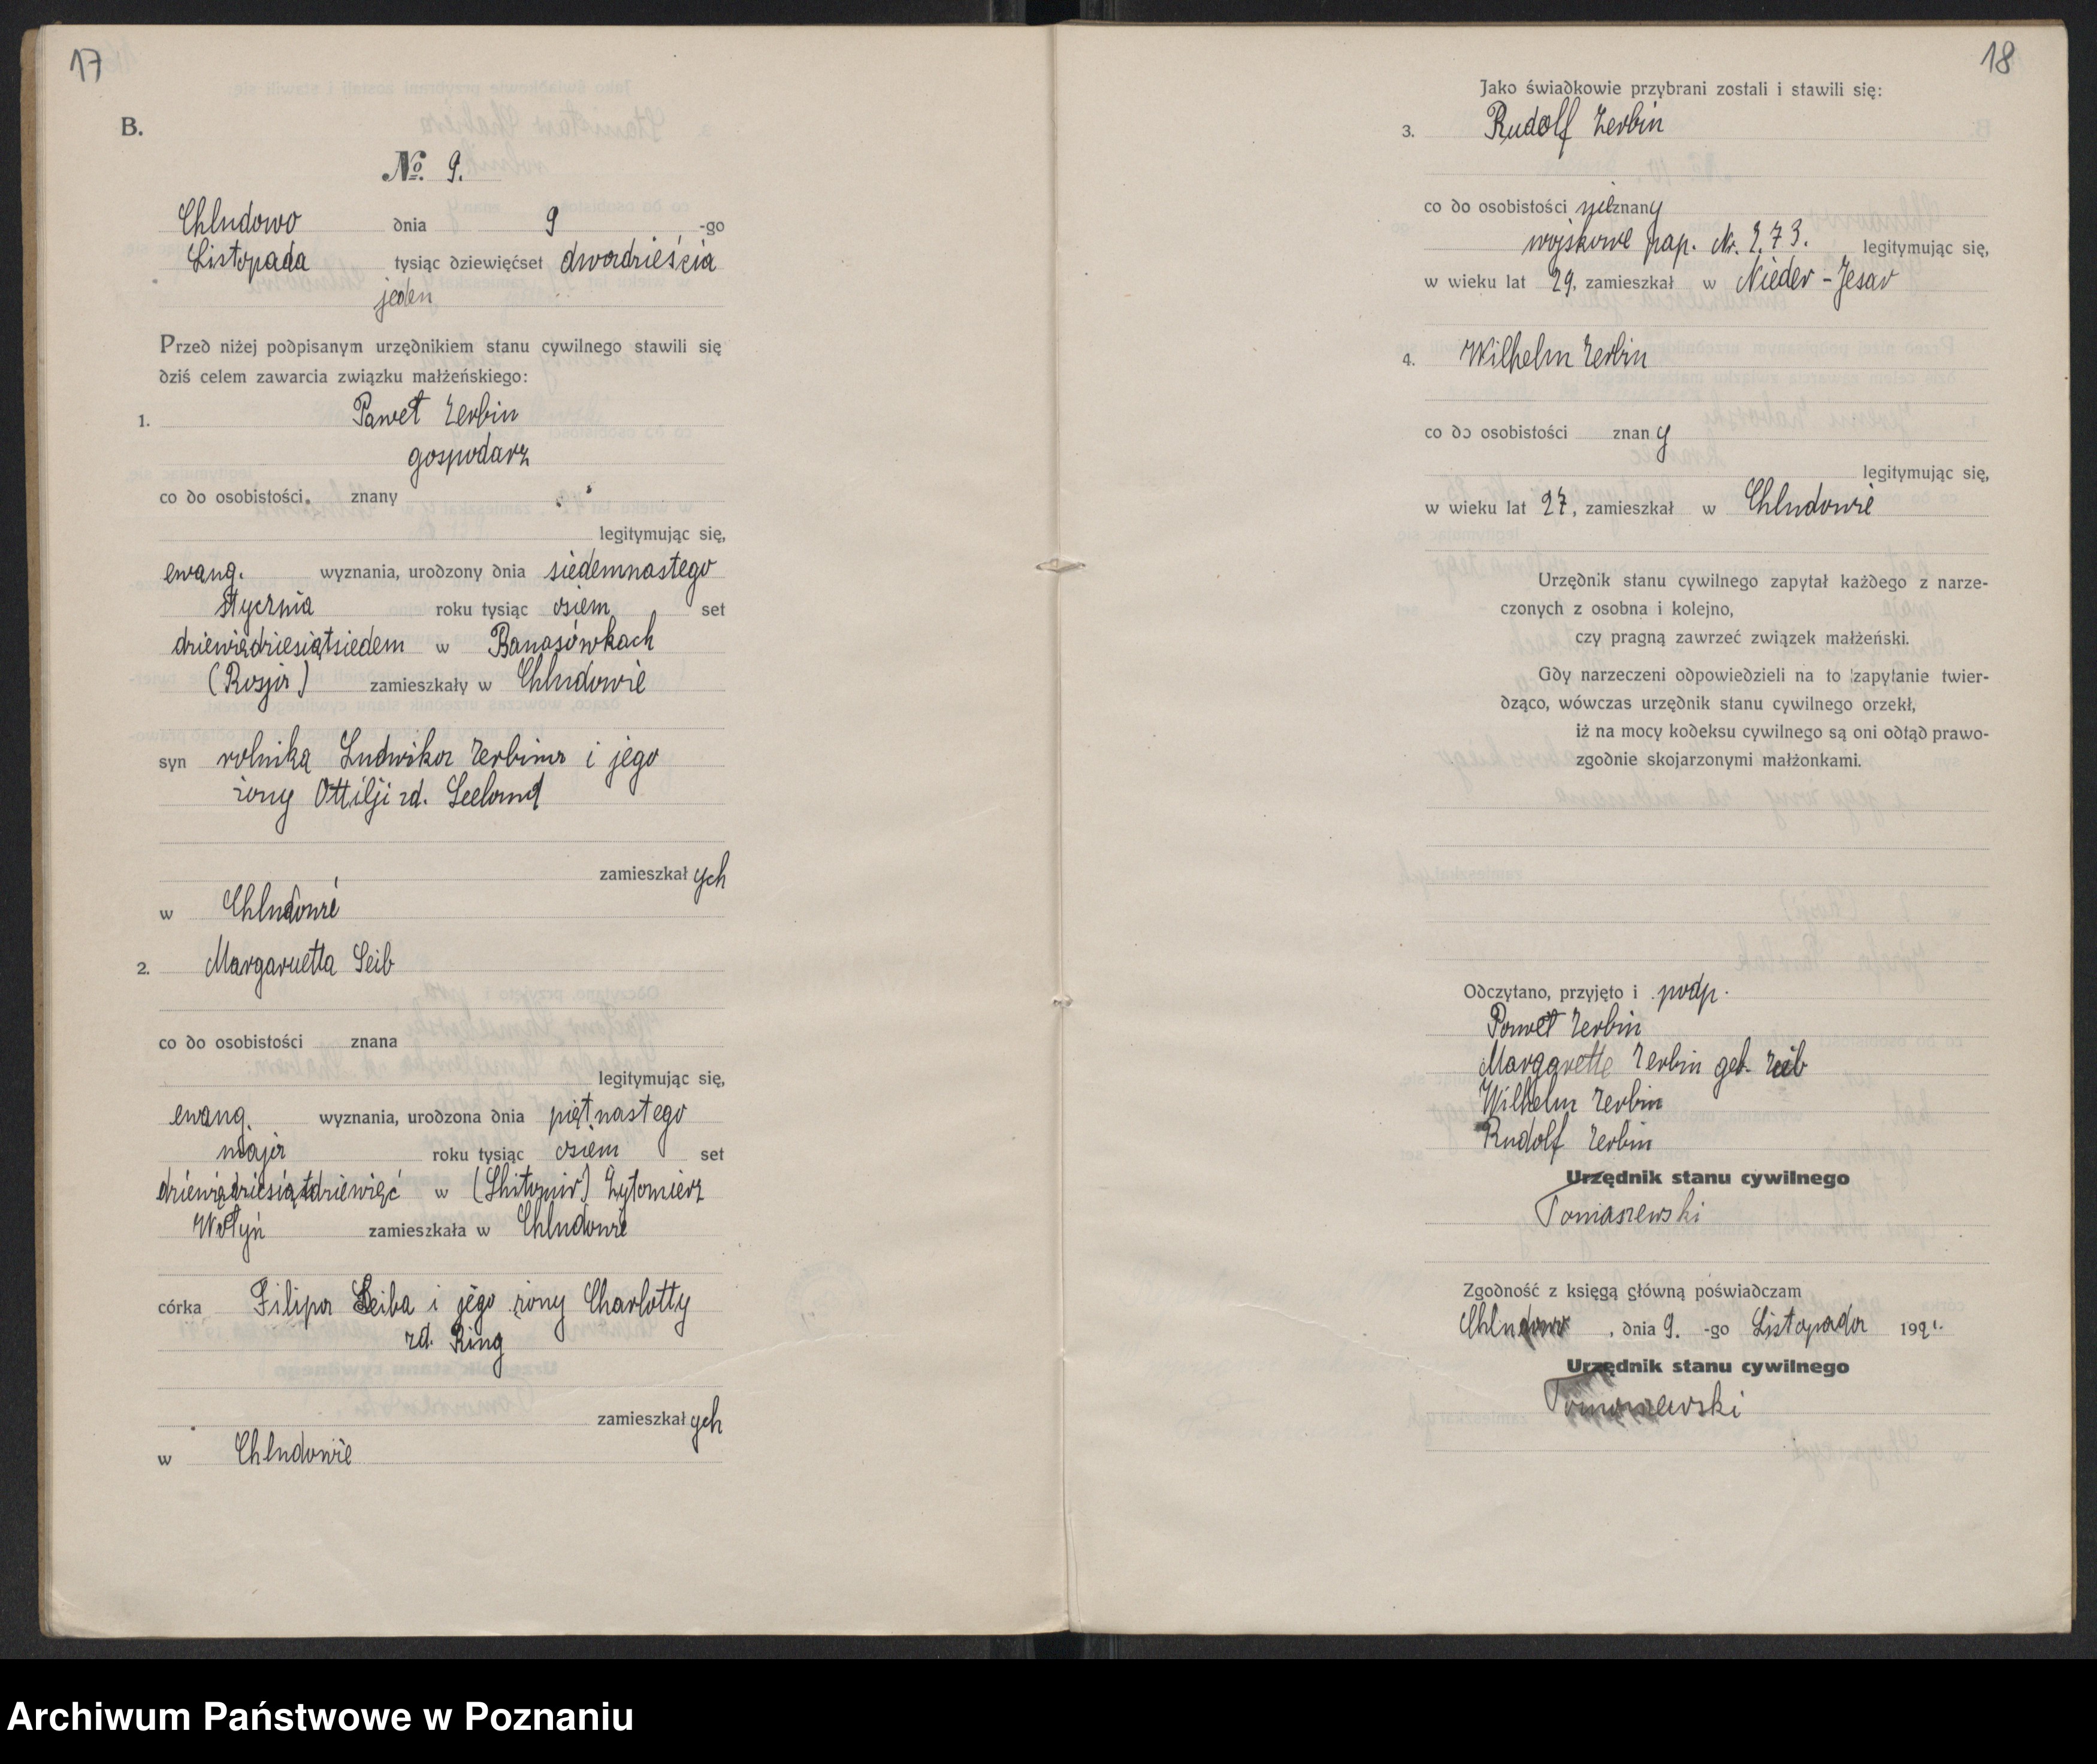 17
B.
№ 9.
Chludowo dnia 9 -go
Listopada tysiąc dziewięćset dwadzieścia
jeden
Przed niżej podpisanym urzędnikiem stanu cywilnego stawili się
dziś celem zawarcia związku małżeńskiego:
1. Paweł Zerbin
gospodarz
co do osobistości znany
legitymując się,
ewang. wyznania, urodzony dnia siedemnastego
stycznia roku tysiąc osiem set
dziewiędziesiątsiedem w Banasówkach
(Rosja) zamieszkały w Chludowie
syn rolnika Ludwika Zerbina i jego
żony Ottilji zd. Seeland
zamieszkałych
w Chludowie
2. Margaruetta Seib
co do osobistości znana
legitymując się,
ewang. wyznania, urodzona dnia piętnastego
maja roku tysiąc osiem set
dziewiędziesiątdziewięć w (Shitomir) Żytomierz
Wołyń zamieszkała w Chludowie
córka Filipa Seiba i jego żony Charlotty
zd. Ring
zamieszkałych
w Chludowie
18
Jako świadkowie przybrani zostali i stawili się:
3. Rudolf Zerbin
co do osobistości nieznany
wojskowe pap. Nr. 273. legitymując się,
w wieku lat 29, zamieszkał w Nieder-Jesar
4. Wilhelm Zerbin
co do osobistości znany
legitymując się,
w wieku lat 27, zamieszkał w Chludowie
Urzędnik stanu cywilnego zapytał każdego z narze-
czonych z osobna i kolejno,
czy pragną zawrzeć związek małżeński.
Gdy narzeczeni odpowiedzieli na to zapytanie twier-
dząco, wówczas urzędnik stanu cywilnego orzekł,
iż na mocy kodeksu cywilnego są oni odtąd prawo-
zgodnie skojarzonymi małżonkami.
Odczytano, przyjęto i podp.
Paweł Zerbin
Margarette Zerbin geb. Seib
Wilhelm Zerbin
Rudolf Zerbin
Urzędnik stanu cywilnego
Tomaszewski
Zgodność z księgą główną poświadczam
Chludowo, dnia 9. -go Listopada 1921.
Urzędnik stanu cywilnego
Tomaszewski
Archiwum Państwowe w Poznaniu